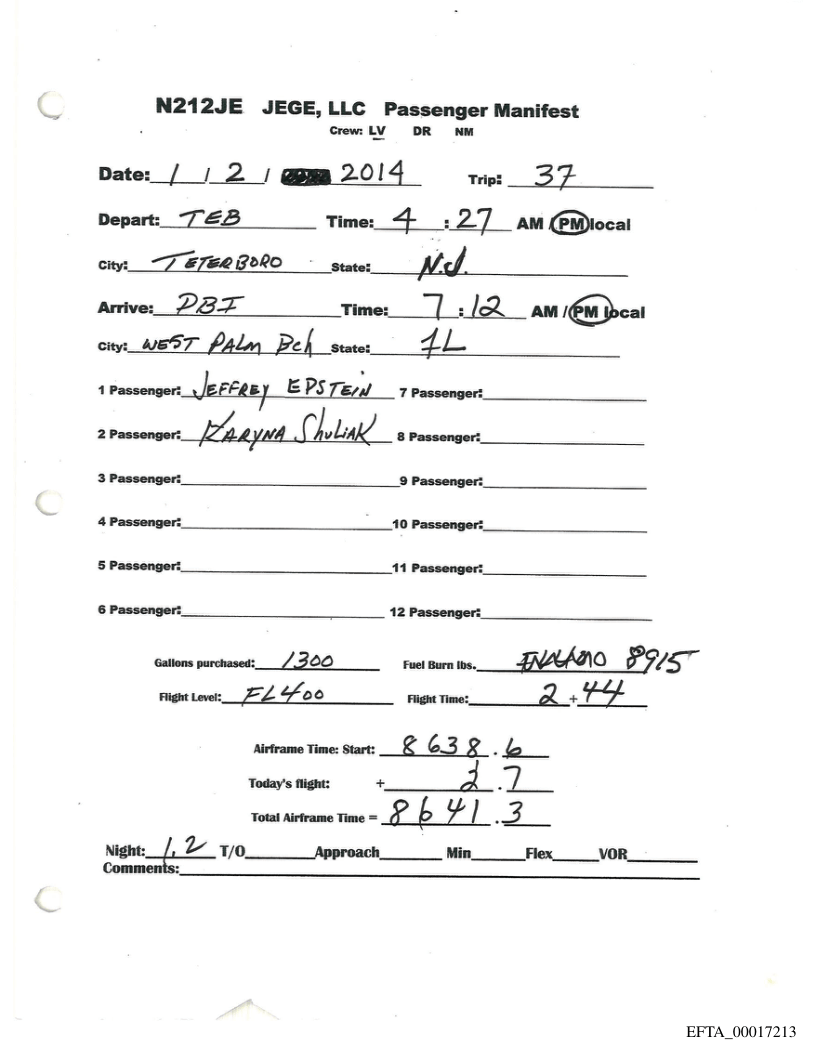 N212JE JEGE, LLC Passenger Manifest
Crew: LV DR NM
Date: 1 / 2 / 2014 Trip: 37
Depart: TEB Time: 4 : 27 AM / PM local
City: TETERBORO State: N.J.
Arrive: PBI Time: 7 : 12 AM / PM local
City: WEST PALM Bch State: FL
1 Passenger: JEFFREY EPSTEIN 7 Passenger:
2 Passenger: KARYNA SHULIAK 8 Passenger:
3 Passenger: 9 Passenger:
4 Passenger: 10 Passenger:
5 Passenger: 11 Passenger:
6 Passenger: 12 Passenger:
Gallons purchased: 1300 Fuel Burn lbs. 8915
Flight Level: FL400 Flight Time: 2 + 44
Airframe Time: Start: 8638 . 6
Today's flight: + 2 . 7
Total Airframe Time = 8641 . 3
Night: 1.2 T/O Approach Min Flex VOR
Comments:
EFTA_00017213